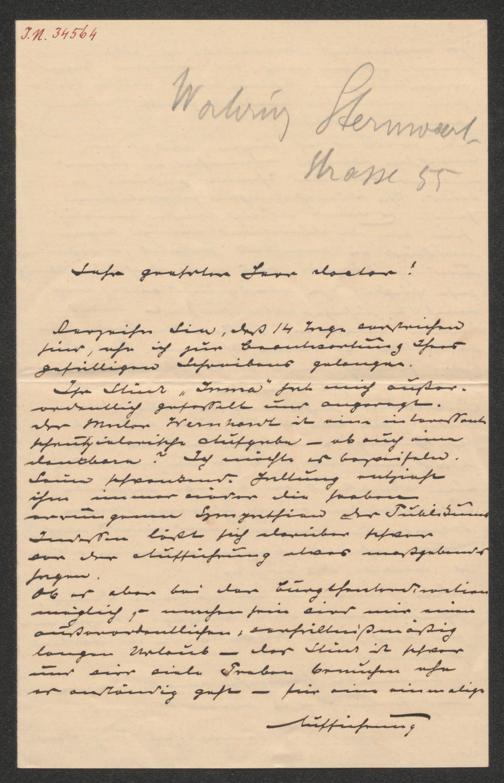 I.N. 34564
Währing Sternwart-
strasse 55
Sehr geehrter Herr Doctor!
Verzeihen Sie, daß 14 Tage verstrichen
sind, ehe ich zur Beantwortung Ihres
gefälligen Schreibens gelange.
Ihr Stück „Irma" hat mich außer-
ordentlich gefesselt und angeregt.
Der Maler Wernhardt ist eine interessante
schauspielerische Aufgabe – ob auch eine
dankbare? Ich möchte es bezweifeln.
Seine schwankende Haltung entzieht
ihm immer wieder die soeben
errungenen Sympathien des Publikums
Indessen läßt sich darüber schwer
vor der Aufführung etwas maßgebendes
sagen.
Ob es aber bei der Burgtheaterdirection
möglich, zu machen sein wird mir einen
außerordentlichen, verhältnißmäßig
langen Urlaub – das Stück ist schwer
und wir viele Proben brauchen ehe
es anständig geht – für eine einmalige
Aufführung